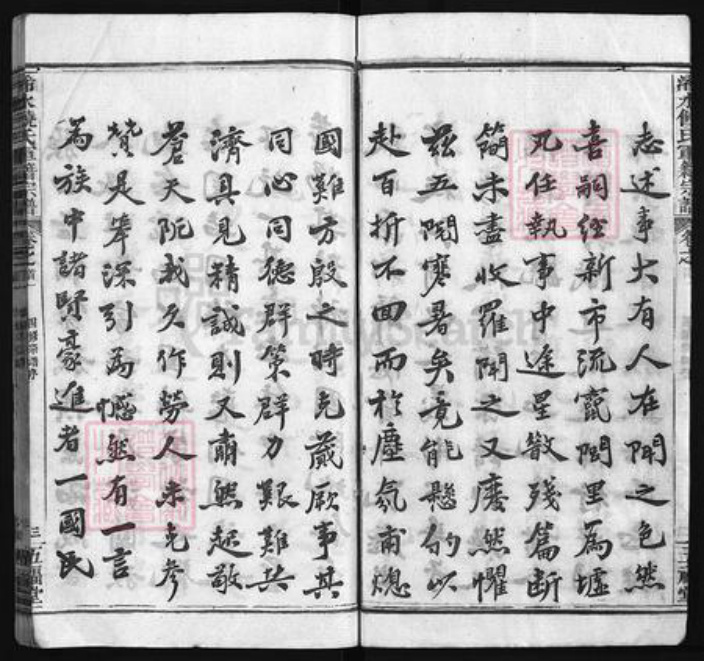 志述事大有人在聞之色然
喜嗣經新市流竄閭里為墟
凡任執事中途星散殘篇斷
簡未盡收羅聞之又廢然懼
茲五閱寒暑矣竟能懸的以
赴百折不回而於塵氛甫熄
國難方殷之時克蕆厥事其
同心同德群策群力艱難共
濟具見精誠則又肅然起敬
蒼天阨我久作勞人未克參
贊是舉深引為憾然有一言
為族中諸賢豪進者一國民
五福堂
FamilySearch